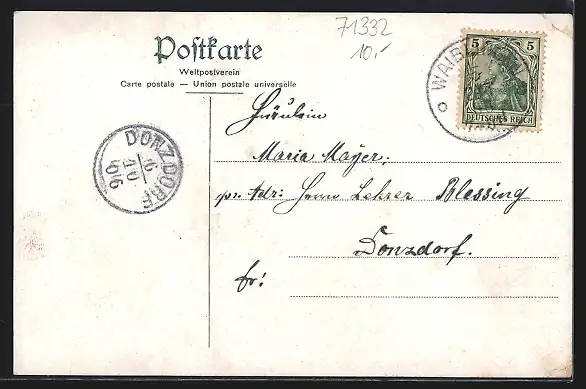 71332
10.-
Postkarte
Weltpostverein
Carte postale — Union postale universelle
5 5
DEUTSCHES REICH
WAIBL
Fräulein
Maria Mayer,
pr. Adr: Herrn Lehrer Blessing
Donzdorf.
fr!
DONZDORF
16
10
06